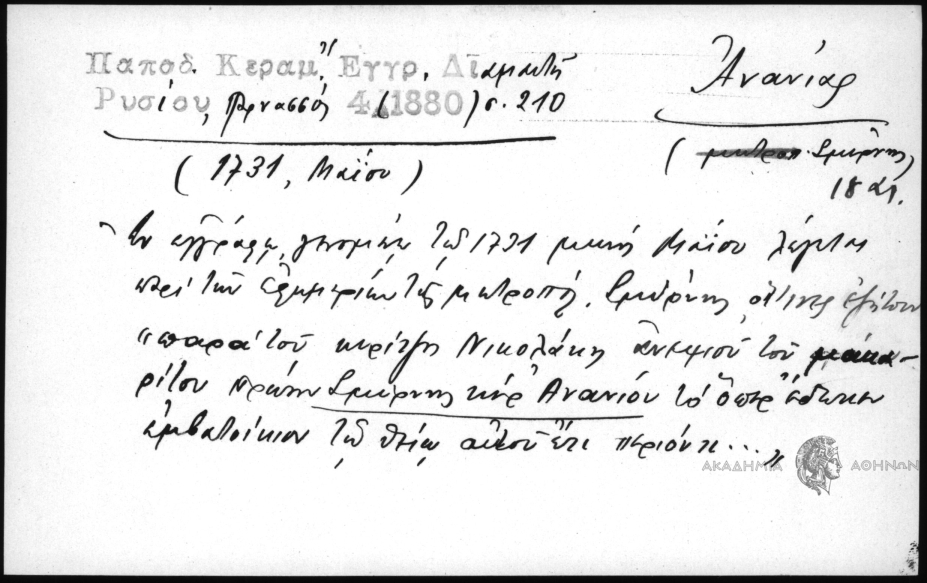 Παπαδ. Κεραμ., Εγγρ. Διαμαντῆ
Ρυσίου, Παρνασσός 4 (1880) σ. 210
Ἀνανίας
(μητροπ. Σμύρνης)
18 αι.
(1731, Μαΐου)
Ἐν ἐγγράφῳ γενομένῳ τῷ 1731 μηνὶ Μαΐου λέγεται
περὶ τῶν ἐφημερίων τῆς μητροπ. Σμύρνης, οἵτινες ἐζήτουν
"παρὰ τοῦ κυρίτζη Νικολάκη ἀνεψιοῦ του μακα-
ρίτου πρώην Σμύρνης κὺρ Ἀνανίου τὸ ὅπερ ἔδωκεν
ἐμβατοίκιον τῷ θείῳ αὐτοῦ ἔτι περιόντι..."
ΑΚΑΔΗΜΙΑ ΑΘΗΝΩΝ